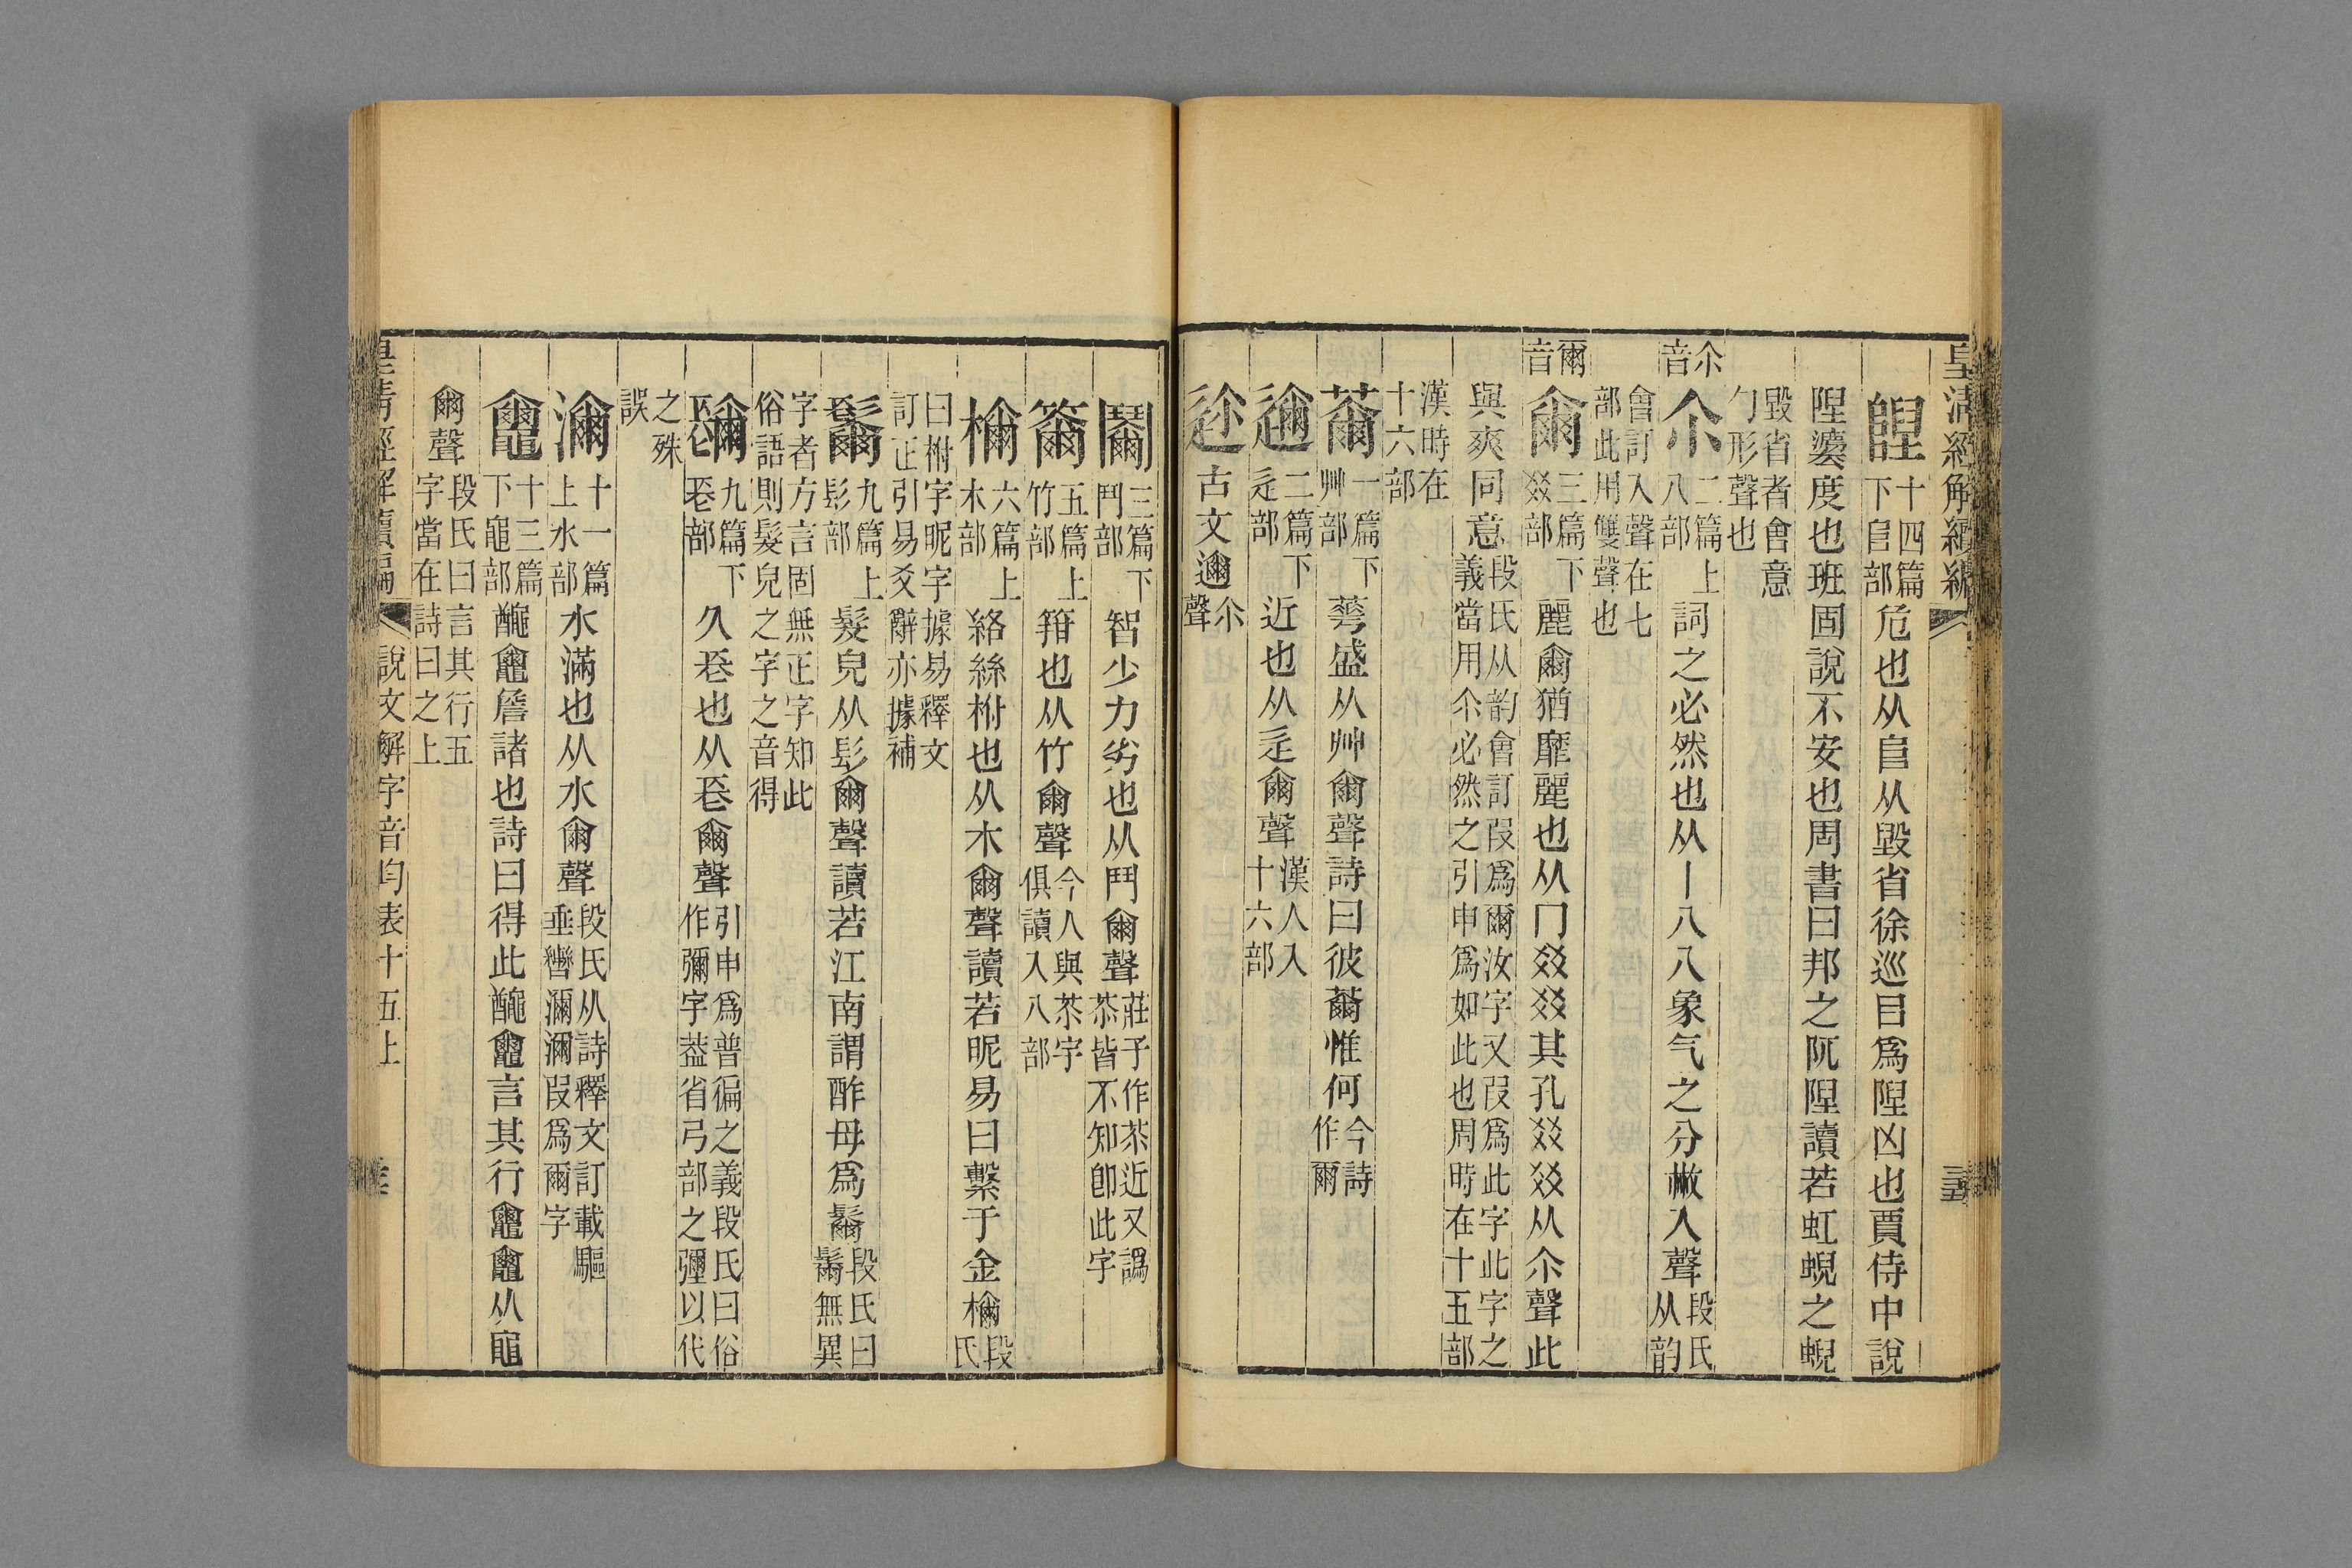 皇清經解續編
隉十四篇下𨸏部危也从𨸏从毀省徐巡目爲隉凶也賈侍中說
隉灋度也班固說不安也周書曰邦之阢隉讀若虹蜺之蜺
毀省者會意勹形聲也
尒音尒二篇上八部詞之必然也从丨八八象气之分㪇入聲段氏从韵
會訂入聲在七部此用雙聲也
爾音爾三篇下㸚部麗爾猶靡麗也从冂㸚㸚其孔㸚㸚从尒聲此
與爽同意段氏从韵會訂叚爲爾汝字又叚爲此字此字之義當用尒必然之引申爲如此也周時在十五部
漢時在十六部
薾一篇下艸部蕚盛从艸爾聲詩曰彼薾惟何今詩作爾
邇二篇下辵部近也从辵爾聲漢人入十六部
迩古文邇尒聲
鬫三篇下鬥部智少力劣也从鬥爾聲莊子作苶近又譌苶皆不知卽此字
籋五篇上竹部箝也从竹爾聲今人與苶字俱讀入八部
檷六篇上木部絡絲柎也从木爾聲讀若昵易曰繫于金檷段氏
曰柎字昵字據易釋文訂正引易爻辭亦據補
鬗九篇上髟部髮皃从髟爾聲讀若江南謂酢母爲鬗段氏曰鬗無異
字者方言固無正字知此俗語則髮皃之字之音得
镾九篇下镸部久镸也从镸爾聲引申爲普徧之義段氏曰俗作彌字葢省弓部之彌以代
之殊誤
濔十一篇上水部水滿也从水爾聲段氏从詩釋文訂載驅垂轡濔濔叚爲爾字
鼅十三篇下黽部詹諸也詩曰得此言其行从黽
爾聲段氏曰言其行五字當在詩曰之上
皇清經解續編 說文解字音均表十五上